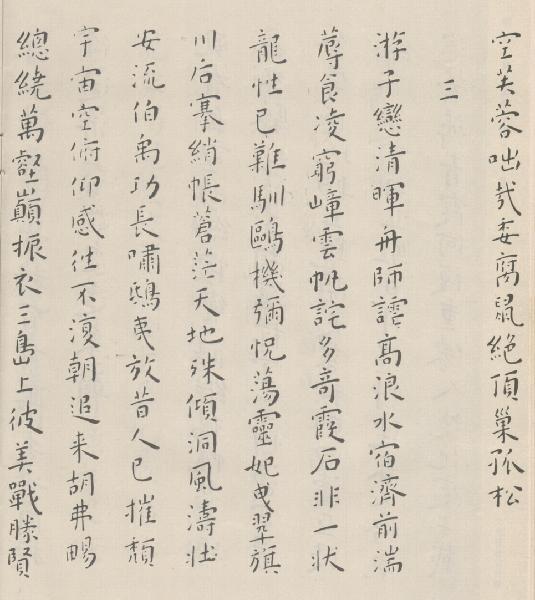 空芙蓉咄哉委腐鼠絕頂巢孤松
三
游子戀清暉舟師謔高浪水宿濟前湍
蓐食凌窮嶂雲帆詫多奇霞石非一狀
龍性已難馴鷗機彌怳蕩靈妃曳翠旗
川后搴綃帳蒼茫天地殊傾洞風濤壯
安流伯禹功長嘯鴟夷放昔人已摧頹
宇宙空俯仰感往不湏朝追来胡弗暢
總繞萬壑巔振衣三島上彼美戰勝賢